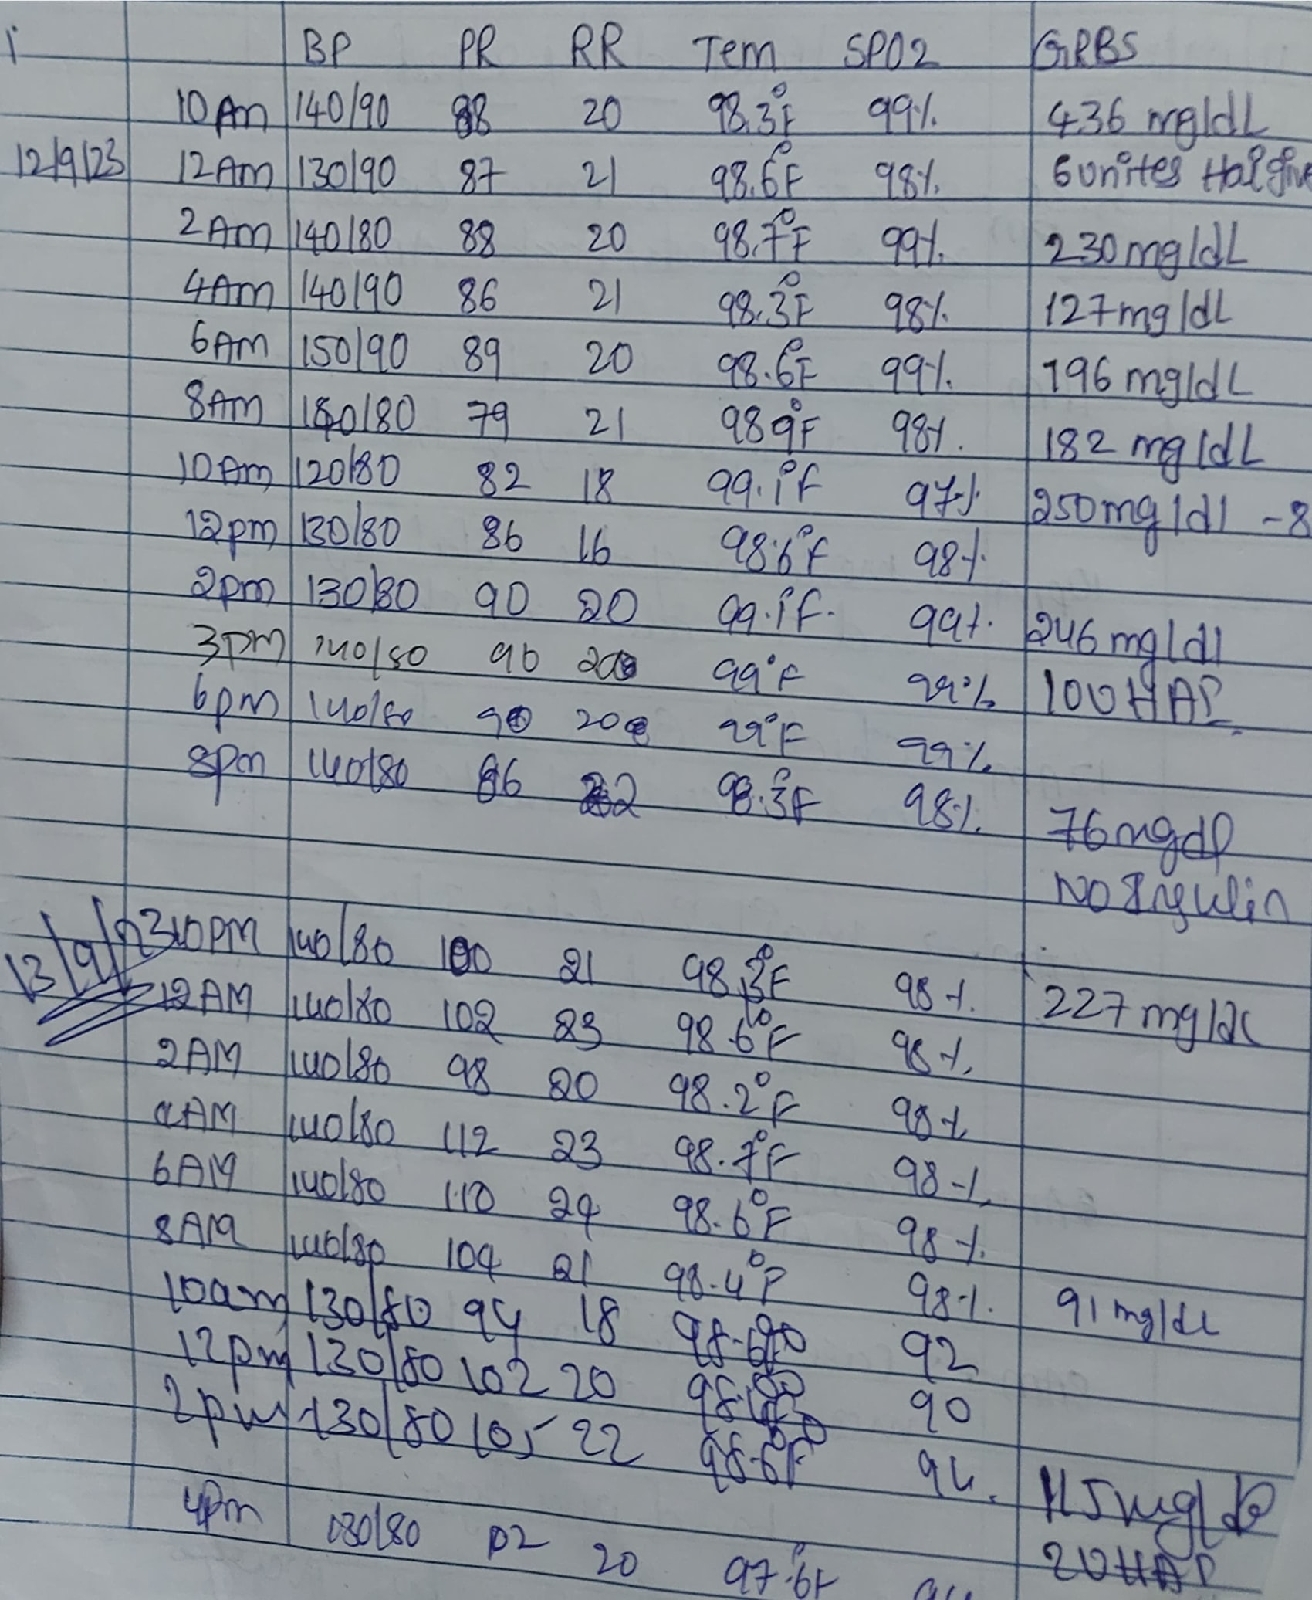 BP PR RR Tem SPO2 GRBS
10Am 140/90 88 20 98.3°F 99% 436 mg/dL
12/9/23 12Am 130/90 87 21 98.6°F 98% 6 unites Hai give
2Am 140/80 88 20 98.7°F 99% 230 mg/dL
4Am 140/90 86 21 98.3°F 98% 127 mg/dL
6AM 150/90 89 20 98.6°F 99% 196 mg/dL
8AM /80 79 21 98 9°F 98% 182 mg/dL
10Am 120/80 82 18 99.1°F 97% 250 mg/dl -8
12pm 130/80 86 16 98.6°F 98%
2pm 130/80 90 20 99.1°F. 99% 246 mg/dl
3pm 140/80 90 20 99°F 99% 10U HAI
6pm 140/80 90 20 99°F 99%
8pm 140/80 86 22 98.3°F 98% 76 mgdl
NO Insulin
13/9/23 10PM 140/80 100 21 98.3°F 98%
12AM 140/80 102 23 98.6°F 98% 227 mg/dl
2AM 140/80 98 20 98.2°F 98%
4AM 140/80 112 23 98.7°F 98%
6AM 140/80 110 24 98.6°F 98%
8AM 140/80 104 21 98.4°F 98% 91 mg/dl
10am 130/80 94 18 92
12pm 130/80 102 20 90
2pm 130/80 105 22 98.6°F 94 115 mg/dl
4pm 130/80 20 97.6F 2U HAI